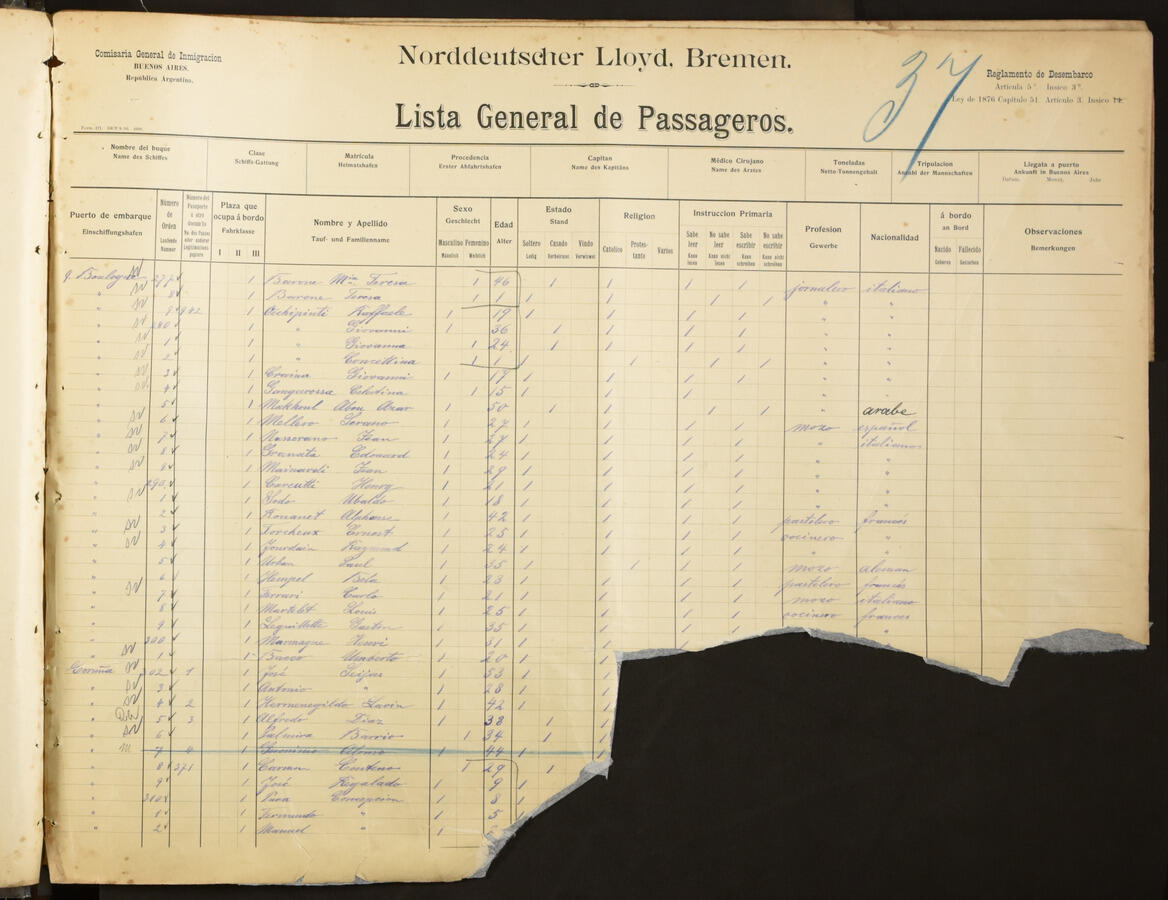 Comisaria General de Inmigracion
BUENOS AIRES.
República Argentina.
Norddeutscher Lloyd, Bremen.
37
Reglamento de Desembarco
Artícula 5º Insico 3º.
Ley de 1876 Capitulo 51. Artículo 3. Insico
Lista General de Passageros.
Nombre del buque Clase Matrícula Procedencia Capitan Médico Cirujano Toneladas Tripulacion Llegata a puerto
Name des Schiffes Schiffs-Gattung Heimatshafen Erster Abfahrtshafen Name des Kapitäns Name des Arztes Netto-Tonnengehalt Anzahl der Mannschaften Ankunft in Buenos Aires
Datum. Monat. Jahr
Puerto de embarque Número de Orden Plaza que ocupa á bordo Nombre y Apellido Sexo Edad Estado Religion Instruccion Primaria Profesion Nacionalidad á bordo Observaciones
Einschiffungshafen Laufende Nummer Fahrklasse Tauf- und Familienname Geschlecht Alter Stand Gewerbe an Bord Bemerkungen
I II III Masculino Femenino Soltero Casado Vindo Catolico Protes-tante Varios Sabe leer No sabe leer Sabe escribir No sabe escribir Nacido Fallecido
Männlich Weiblich Ledig Verheiratet Verwitwet Kann lesen Kann nicht lesen Kann schreiben Kann nicht schreiben Geboren Gestorben
Boulogne 277 1 Barone Mia Teresa 1 46 1 1 1 jornalero italiano
" 8 1 Barone Teresa 1 1 1 1 1 1 " "
" 9 942 1 Occhipinti Raffaele 1 19 1 1 1 1 " "
" 280 1 " Giovanni 1 36 1 1 1 1 " "
" 1 1 " Giovanna 1 24 1 1 1 1 " "
" 2 1 " Concettina 1 1 1 1 1 " "
" 3 1 Craina Giovanni 1 1 1 1 1 " "
" 4 1 Celestina 1 15 1 1 1 1 " "
" 5 1 Makhoul Abou Azar 1 50 1 1 1 1 " arabe
" 6 1 Mellero Serano 1 27 1 1 1 1 mozo español
" 7 1 Jean 1 27 1 1 1 1 " italiano
" 8 1 Granata Edouard 1 24 1 1 1 1 " "
" 9 1 Mainardi Jean 1 29 1 1 1 1 " "
" 290 1 Carcutti Henry 1 21 1 1 1 1 " "
" 1 1 Ubaldo 1 18 1 1 1 1 " "
" 2 1 Rouanet Alphonse 1 42 1 1 1 1 pastelero francés
" 3 1 Torcheux Ernest 1 25 1 1 1 1 cocinero "
" 4 1 Jourdain Raymond 1 24 1 1 1 1 " "
" 5 1 Urban Paul 1 35 1 1 1 1 mozo aleman
" 6 1 Hempel Béla 1 23 1 1 1 1 pastelero francés
" 7 1 Ferrari Carlo 1 21 1 1 1 1 mozo italiano
" 8 1 Martelet Louis 1 25 1 1 1 1 cocinero frances
" 9 1 Leguillette Gaston 1 35 1 1 1 1 "
" 300 1 Marmagne Henri 1 31 1 1
" 1 1 Bacco Umberto 1 20 1 1
Coruña 302 1 1 José Seijas 1 53 1 1
" 3 1 Antonio " 1 28 1 1
" 4 2 1 Hermenegildo Lavin 1 42 1 1
" 5 3 1 Alfredo Diaz 1 38 1 1
" 6 1 Palmira Barrio 1 34 1 1
" 7 4 1 Alonso 1 44 1 1
" 8 371 1 Centeno 1 29 1
" 9 1 José Regalado 1 9 1
" 310 1 Pura Concepcion 1 8 1
" 1 1 Fernando " 1 5 1
" 2 1 Manuel " 1